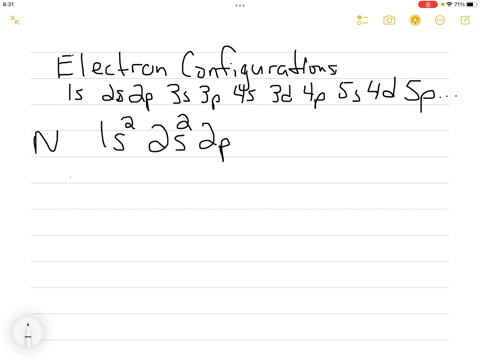 8:31 71%
Electron Configurations
1s 2s 2p 3s 3p 4s 3d 4p 5s 4d 5p...
N 1s² 2s² 2p